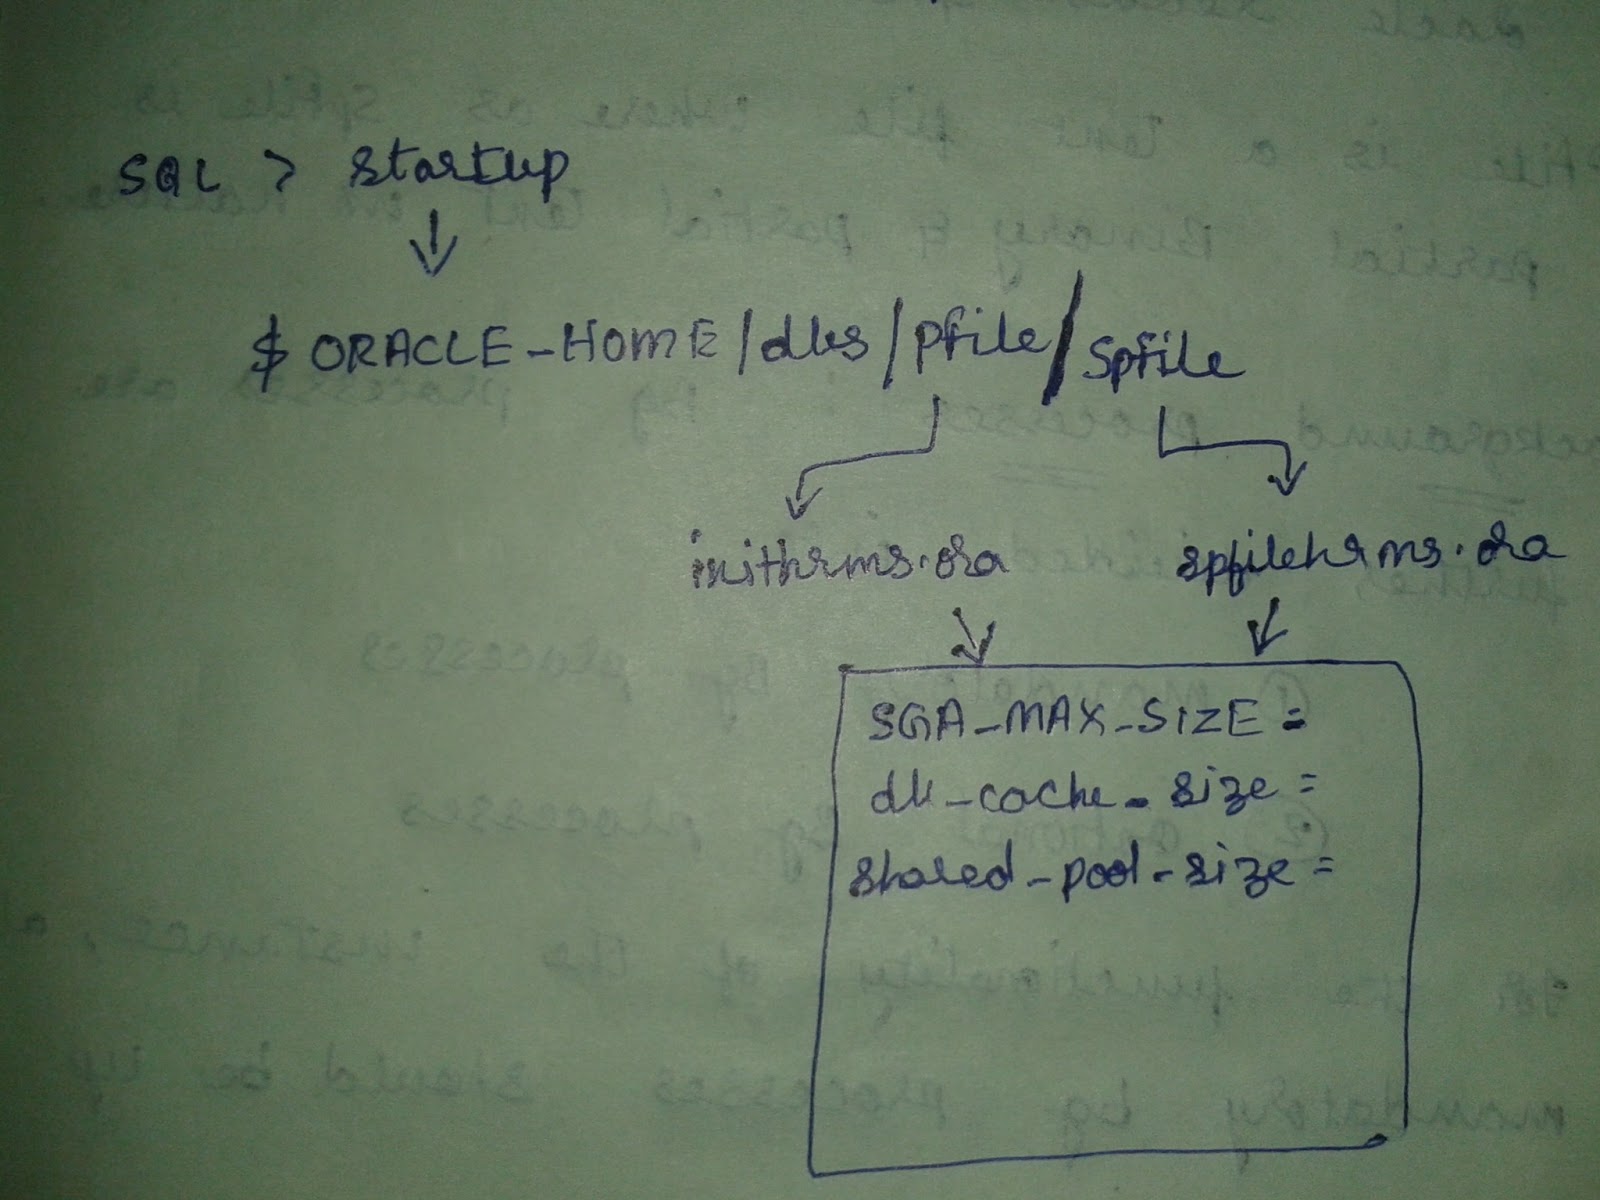 SQL > startup
$ ORACLE_HOME/dbs/pfile/spfile
inithrms.ora spfilehrms.ora
SGA_MAX_SIZE =
db_cache_size =
shared_pool_size =